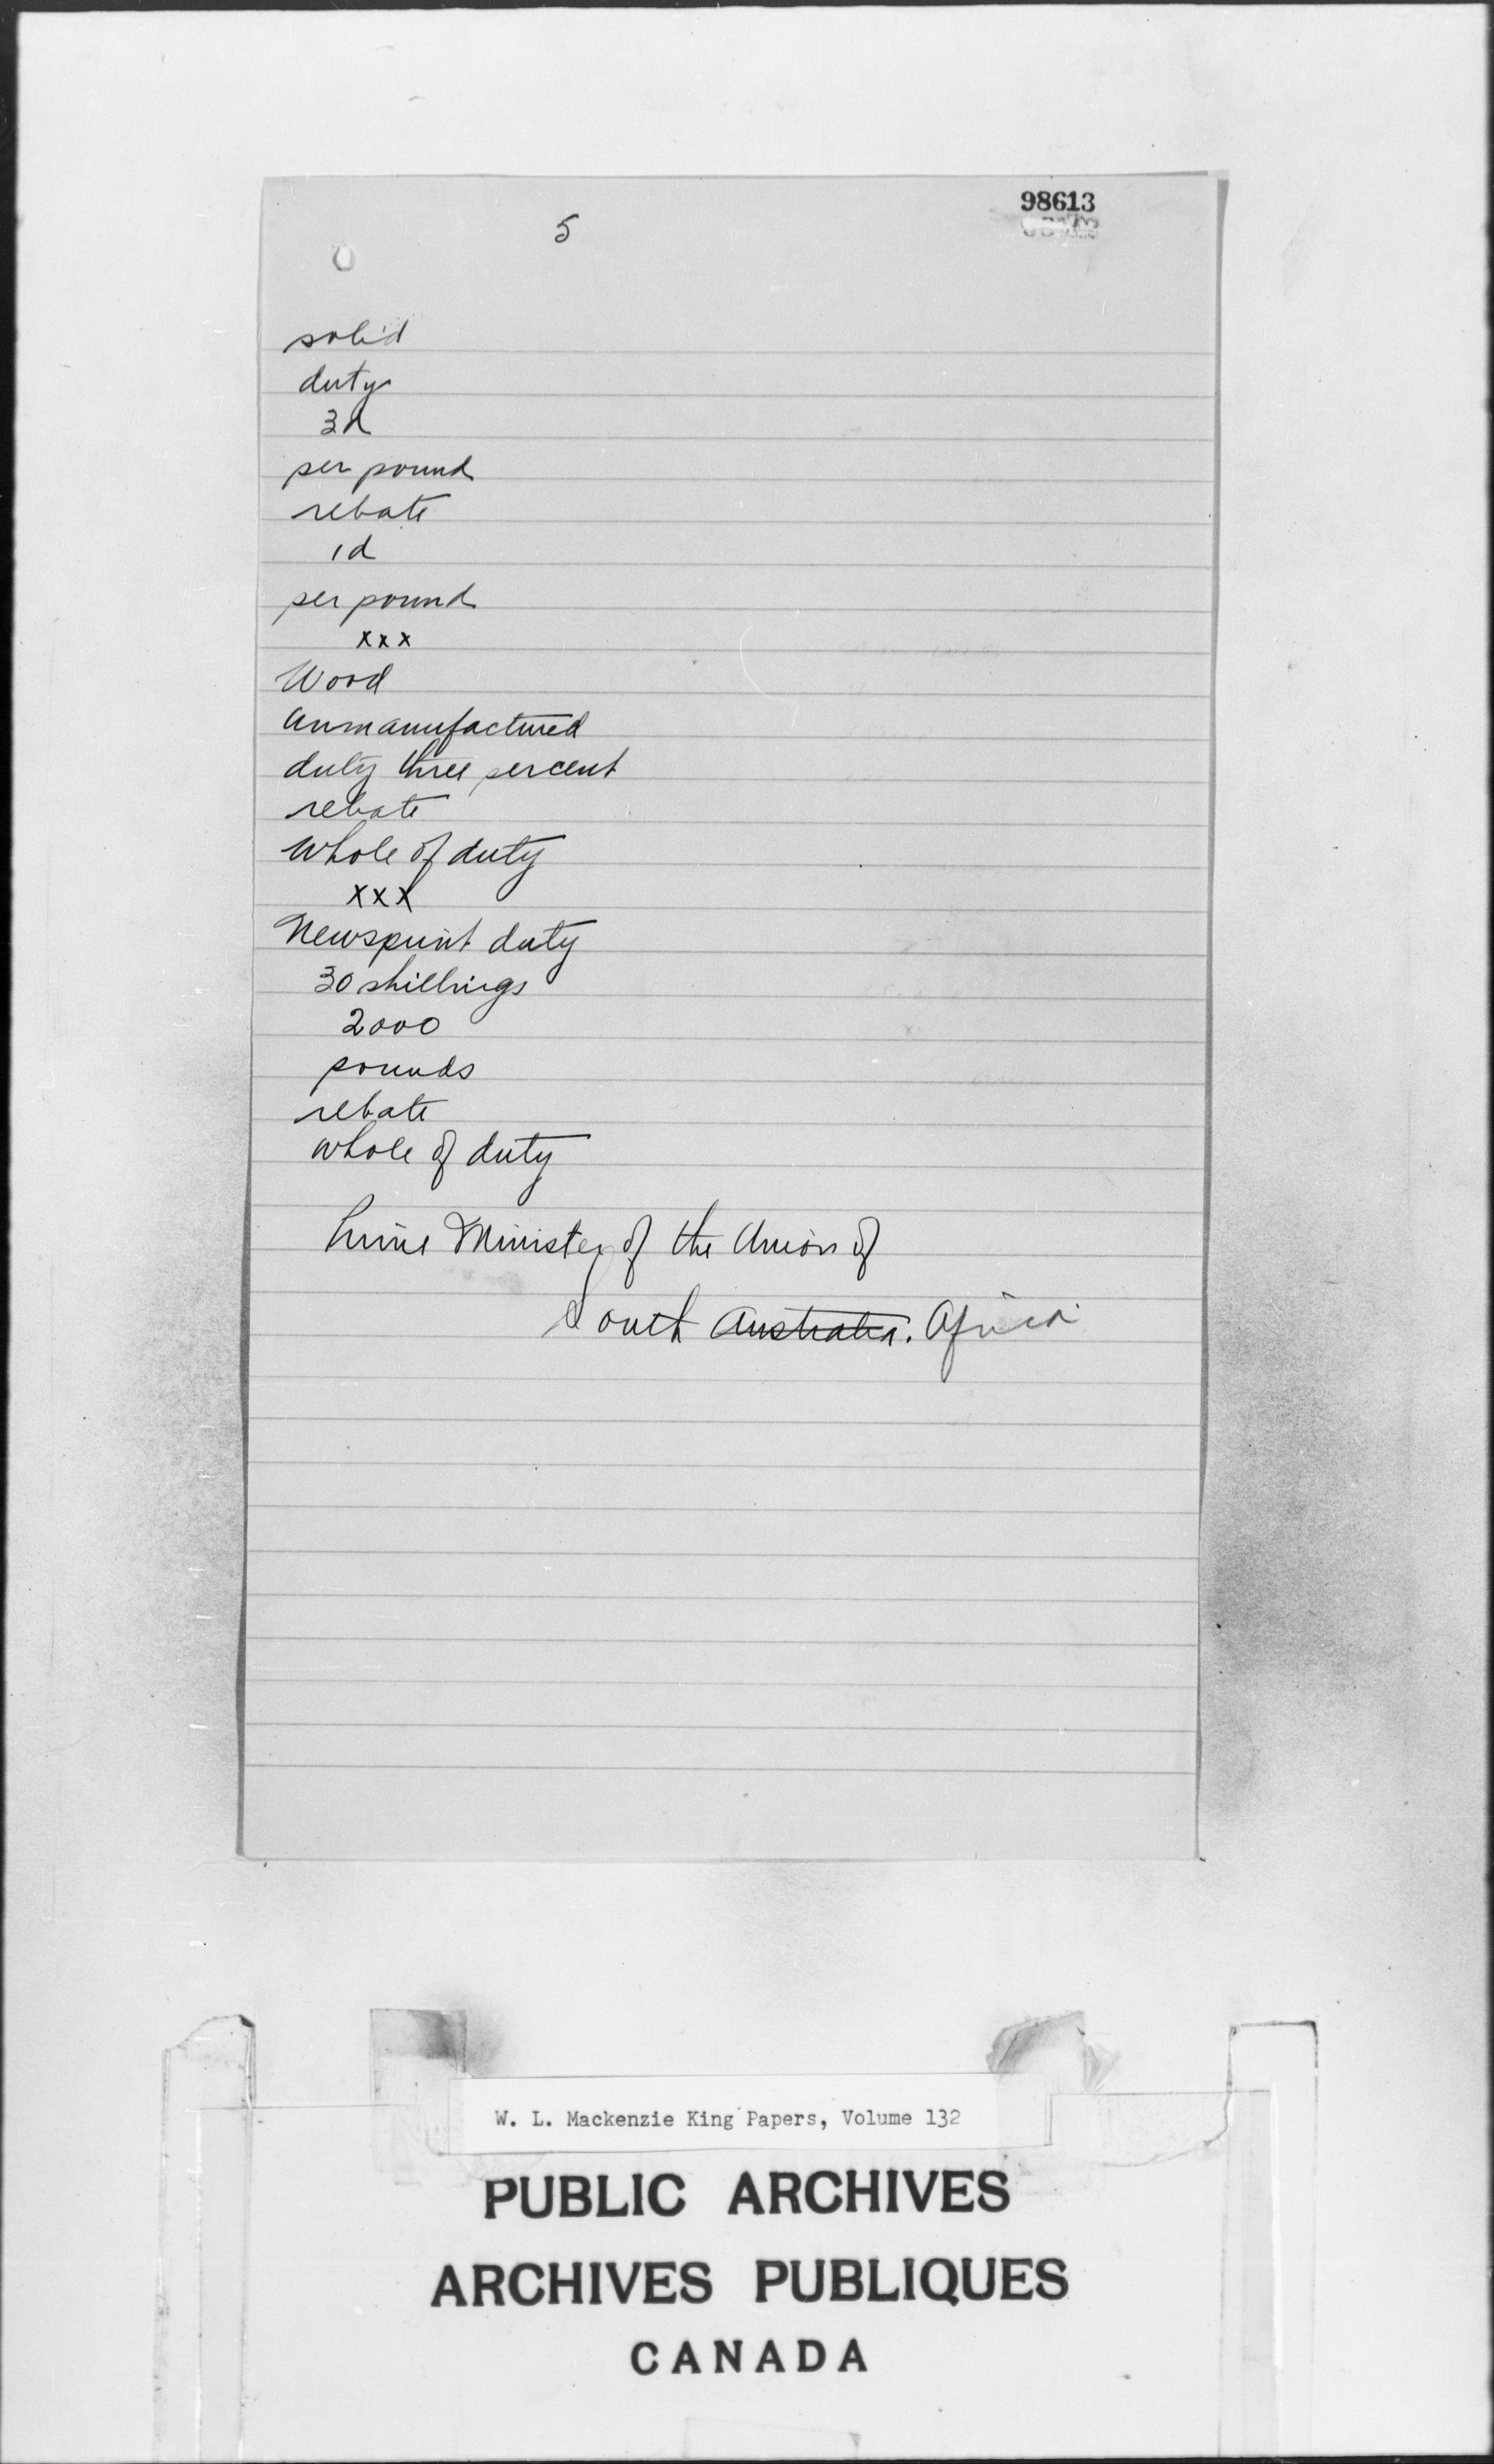 98613
5
solid
duty
3d
per pound
rebate
1d
per pound
xxx
Wood
unmanufactured
duty three percent
rebate
whole of duty
xxx
Newsprint duty
30 shillings
2000
pounds
rebate
whole of duty
Prime Minister of the Union of
South Australia. Africa
W. L. Mackenzie King Papers, Volume 132
PUBLIC ARCHIVES
ARCHIVES PUBLIQUES
CANADA